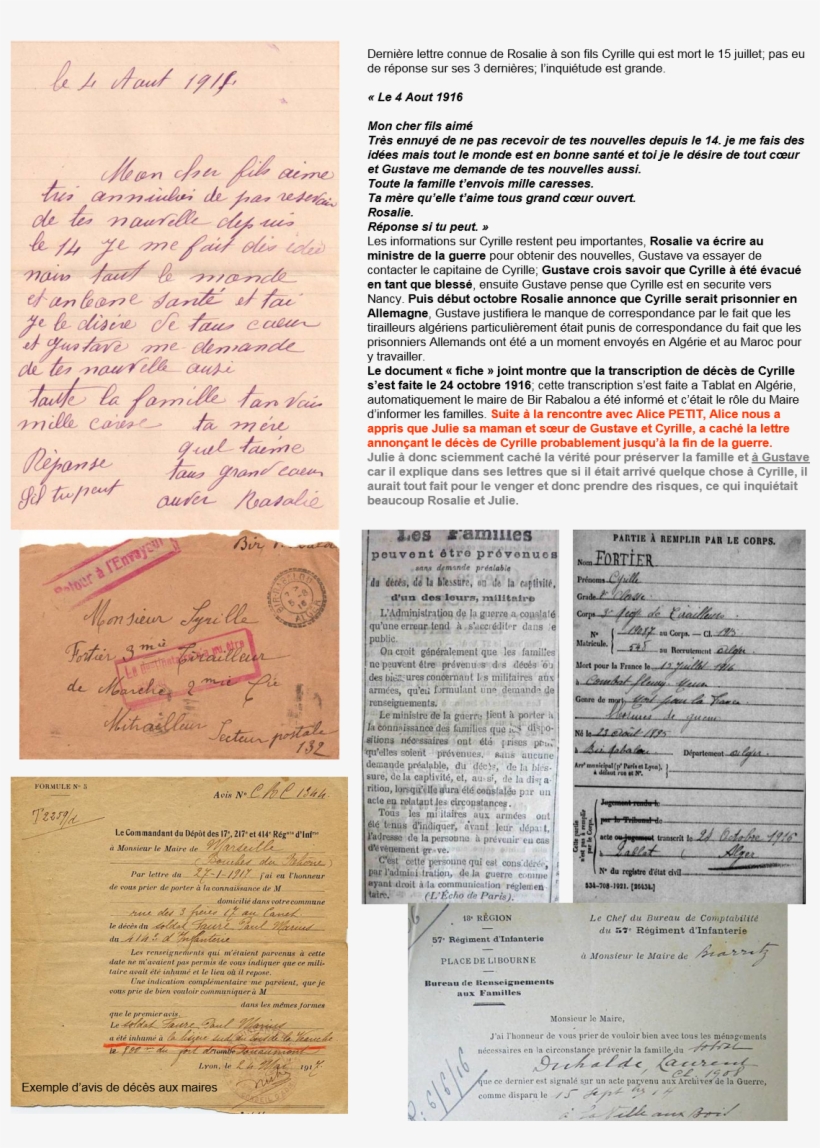 le 4 Aout 1916
Mon cher fils aimé
tris annuibri de pas reservoir
de tes nauvelle depuis
le 14 Je me fait dès ideé
mais taut le monde
et anbonne santé et tai
je le disire de taus caeur
et Gustave me demande
de tes nauvelle ausi
taute la famille tanvais
mille carése ta mére
quel t'aime
Réponse taus grand caeur
sil tu peut auver Rosalie
Dernière lettre connue de Rosalie à son fils Cyrille qui est mort le 15 juillet; pas eu
de réponse sur ses 3 dernières; l'inquiétude est grande.
« Le 4 Aout 1916
Mon cher fils aimé
Très ennuyé de ne pas recevoir de tes nouvelles depuis le 14. je me fais des
idées mais tout le monde est en bonne santé et toi je le désire de tout cœur
et Gustave me demande de tes nouvelles aussi.
Toute la famille t'envois mille caresses.
Ta mère qu'elle t'aime tous grand cœur ouvert.
Rosalie.
Réponse si tu peut. »
Les informations sur Cyrille restent peu importantes, Rosalie va écrire au
ministre de la guerre pour obtenir des nouvelles, Gustave va essayer de
contacter le capitaine de Cyrille; Gustave crois savoir que Cyrille à été évacué
en tant que blessé, ensuite Gustave pense que Cyrille est en securite vers
Nancy. Puis début octobre Rosalie annonce que Cyrille serait prisonnier en
Allemagne, Gustave justifiera le manque de correspondance par le fait que les
tirailleurs algériens particulièrement était punis de correspondance du fait que les
prisonniers Allemands ont été a un moment envoyés en Algérie et au Maroc pour
y travailler.
Le document « fiche » joint montre que la transcription de décès de Cyrille
s'est faite le 24 octobre 1916; cette transcription s'est faite a Tablat en Algérie,
automatiquement le maire de Bir Rabalou a été informé et c'était le rôle du Maire
d'informer les familles. Suite à la rencontre avec Alice PETIT, Alice nous a
appris que Julie sa maman et sœur de Gustave et Cyrille, a caché la lettre
annonçant le décès de Cyrille probablement jusqu'à la fin de la guerre.
Julie à donc sciemment caché la vérité pour préserver la famille et à Gustave
car il explique dans ses lettres que si il était arrivé quelque chose à Cyrille, il
aurait tout fait pour le venger et donc prendre des risques, ce qui inquiétait
beaucoup Rosalie et Julie.
Retour à l'Envoyeur
Monsieur Syrille
Fortier 3mie Tirailleur
de Marche 2mie Cie
Mitrailleur Secteur postale
132
Les Familles
peuvent être prévenues
sans demande préalable
du décès, de la blessure, ou de la captivité,
d'un des leurs, militaire
L'Administration de la guerre a constaté
qu'une erreur tend à s'accréditer dans le
public.
On croit généralement que les familles
ne peuvent être prévenues des décès ou
des blessures concernant les militaires aux
armées, qu'en formulant une demande de
renseignements.
Le ministre de la guerre tient à porter à
la connaissance des familles que les dispo-
sitions nécessaires ont été prises pour
qu'elles soient prévenues, sans aucune
demande préalable, du décès, de la bles-
sure, de la captivité, et, aussi, de la dispa-
rition, lorsqu'elle aura été constatée par un
acte en relatant les circonstances.
Tous les militaires aux armées ont
été tenus d'indiquer, avant leur départ,
l'adresse de la personne à prévenir en cas
d'évènement grave.
C'est cette personne qui est considérée,
par l'administration, de la guerre comme
ayant droit à la communication réglemen-
taire. (L'Écho de Paris).
PARTIE À REMPLIR PAR LE CORPS.
Nom FORTIER
Prénoms Cyrille
Grade 2e Classe
Corps 3e de Tirailleurs
N° Matricule. au Corps. — Cl. 1915
au Recrutement Alger
Mort pour la France le Juillet 1916
à
Genre de mort
Né le 23 Août 1895
à Bir Rabalou Département Alger
Arrt municipal (pr Paris et Lyon), à défaut rue et N°.
Cette partie n'est pas à remplir par le Corps.
Jugement rendu le
par le Tribunal de
acte ou jugement transcrit le 24 Octobre 1916
à Tablat Alger
N° du registre d'état civil
534-708-1921. [26434.]
FORMULE N° 5
Avis N° 1344
T2259/d
Le Commandant du Dépôt des 17e, 217e et 414e Régnts d'Infie
à Monsieur le Maire de Marseille
(Bouches du Rhône)
Par lettre du 27-1-1917 j'ai eu l'honneur
de vous prier de porter à la connaissance de M
domicilié dans votre commune
rue des 3 frères 17 au Canet
le décès du soldat Faure Paul Marius
du 414e d'Infanterie
Les renseignements qui m'étaient parvenus à cette
date ne m'avaient pas permis de vous indiquer que ce mili-
taire avait été inhumé et le lieu où il repose.
Une indication complémentaire me parvient, que je
vous prie de bien vouloir communiquer à M
dans les mêmes formes
que le premier avis.
Le soldat Faure Paul Marius
a été inhumé à
Lyon, le 24 Mai 1917
Exemple d'avis de décès aux maires
18e RÉGION
57e Régiment d'Infanterie
PLACE DE LIBOURNE
Bureau de Renseignements
aux Familles
Le Chef du Bureau de Comptabilité
du 57e Régiment d'Infanterie
à Monsieur le Maire de Biarritz
Monsieur le Maire,
J'ai l'honneur de vous prier de vouloir bien avec tous les ménagements
nécessaires en la circonstance prévenir la famille du soldat
Duhalde, Laurent
Cl. 1908
que ce dernier est signalé sur un acte parvenu aux Archives de la Guerre,
comme disparu le 15 Septbre 14
à La Ville aux Bois
6/6/16